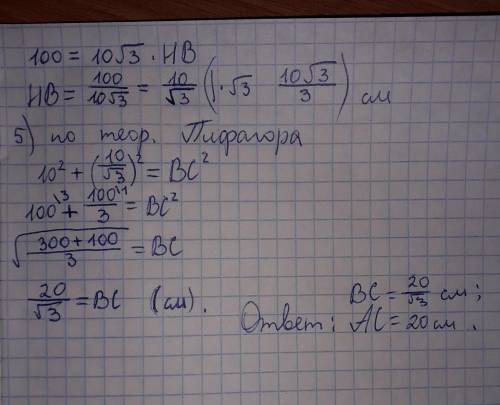 100 = 10√3 · HB
HB = 100/10√3 = 10/√3 (|·√3 10√3/3) см
5) по теор. Пифагора
10² + (10/√3)² = BC²
100\3 + 100\1/3 = BC²
√(300+100/3) = BC
20/√3 = BC (см).
BC = 20/√3 см;
Ответ: AC = 20 см.